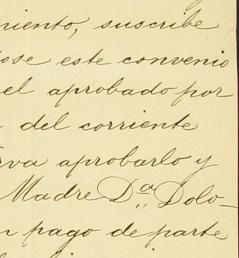 niento, suscribe
ose este convenio
el aprobado por
del corriente
rva aprobarlo y
Madre Dª Dolo-
n pago de parte